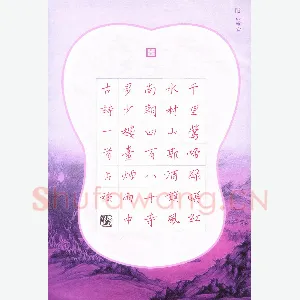 千里鶯啼綠映紅
水村山郭酒旗風
南朝四百八十寺
多少樓臺煙雨中
古詩一首
Shufawang.CN